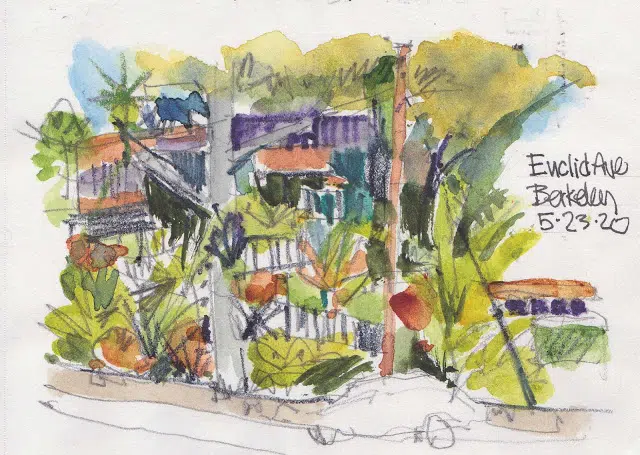 Euclid Ave
Berkeley
5.23.20